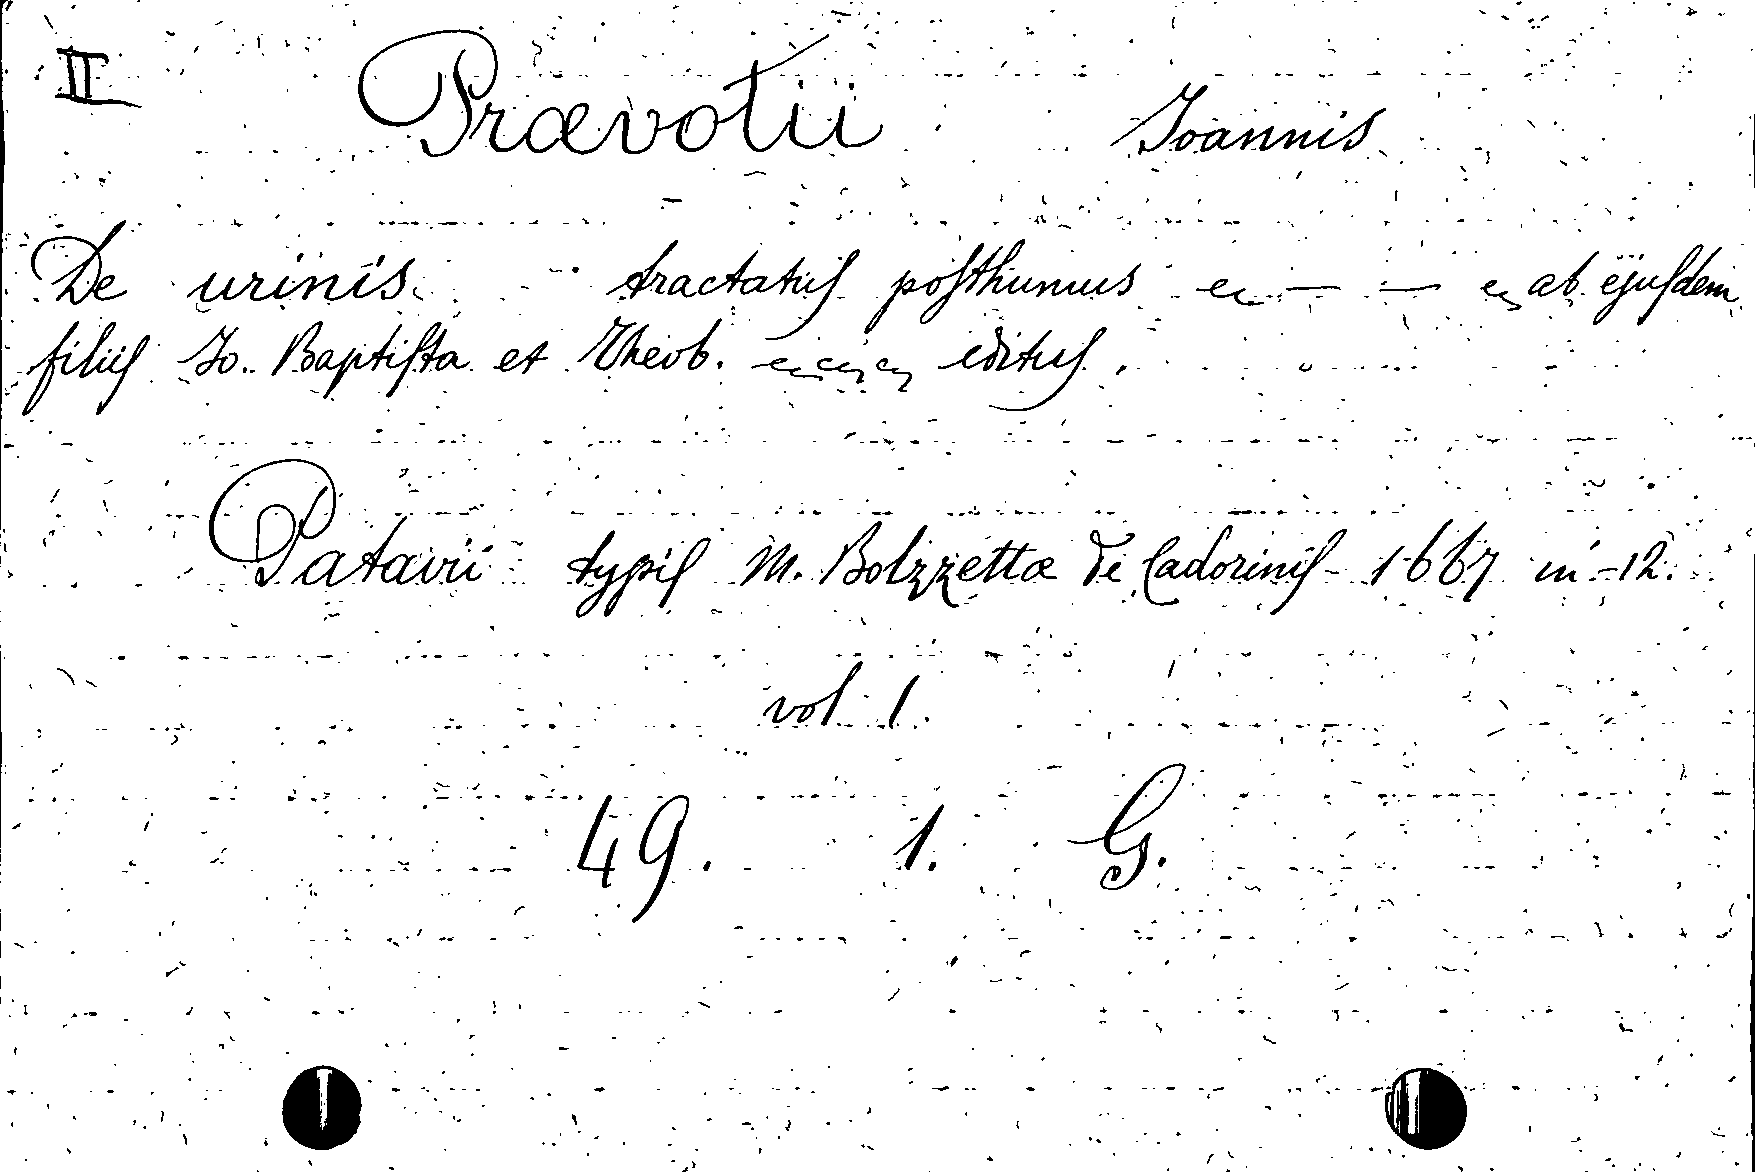 II
Prævotii Joannis
De urinis tractatus posthumus — — ab ejusdem
filiis Jo. Baptista et Theob. editus.
Patavii typis M. Bolzzettæ de Cadorinis 1667 in-12.
vol 1.
49. 1. G.